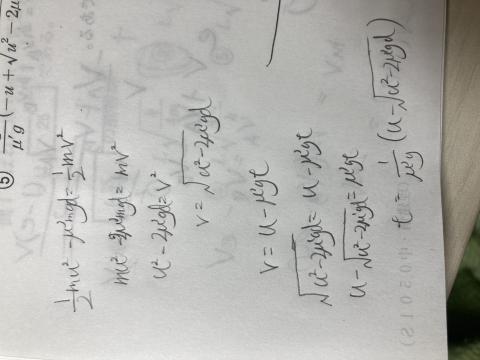 ⑤ 1/μ'g (-u + √u² - 2μ
1/2 mu² - μ'mgd = 1/2 mv²
mu² - 2μ'mgd = mv²
u² - 2μ'gd = v²
v = √u² - 2μ'gd
v = u - μ'gt
√u² - 2μ'gd = u - μ'gt
u - √u² - 2μ'gd = μ'gt
t = 1/μ'g (u - √u² - 2μ'gd)